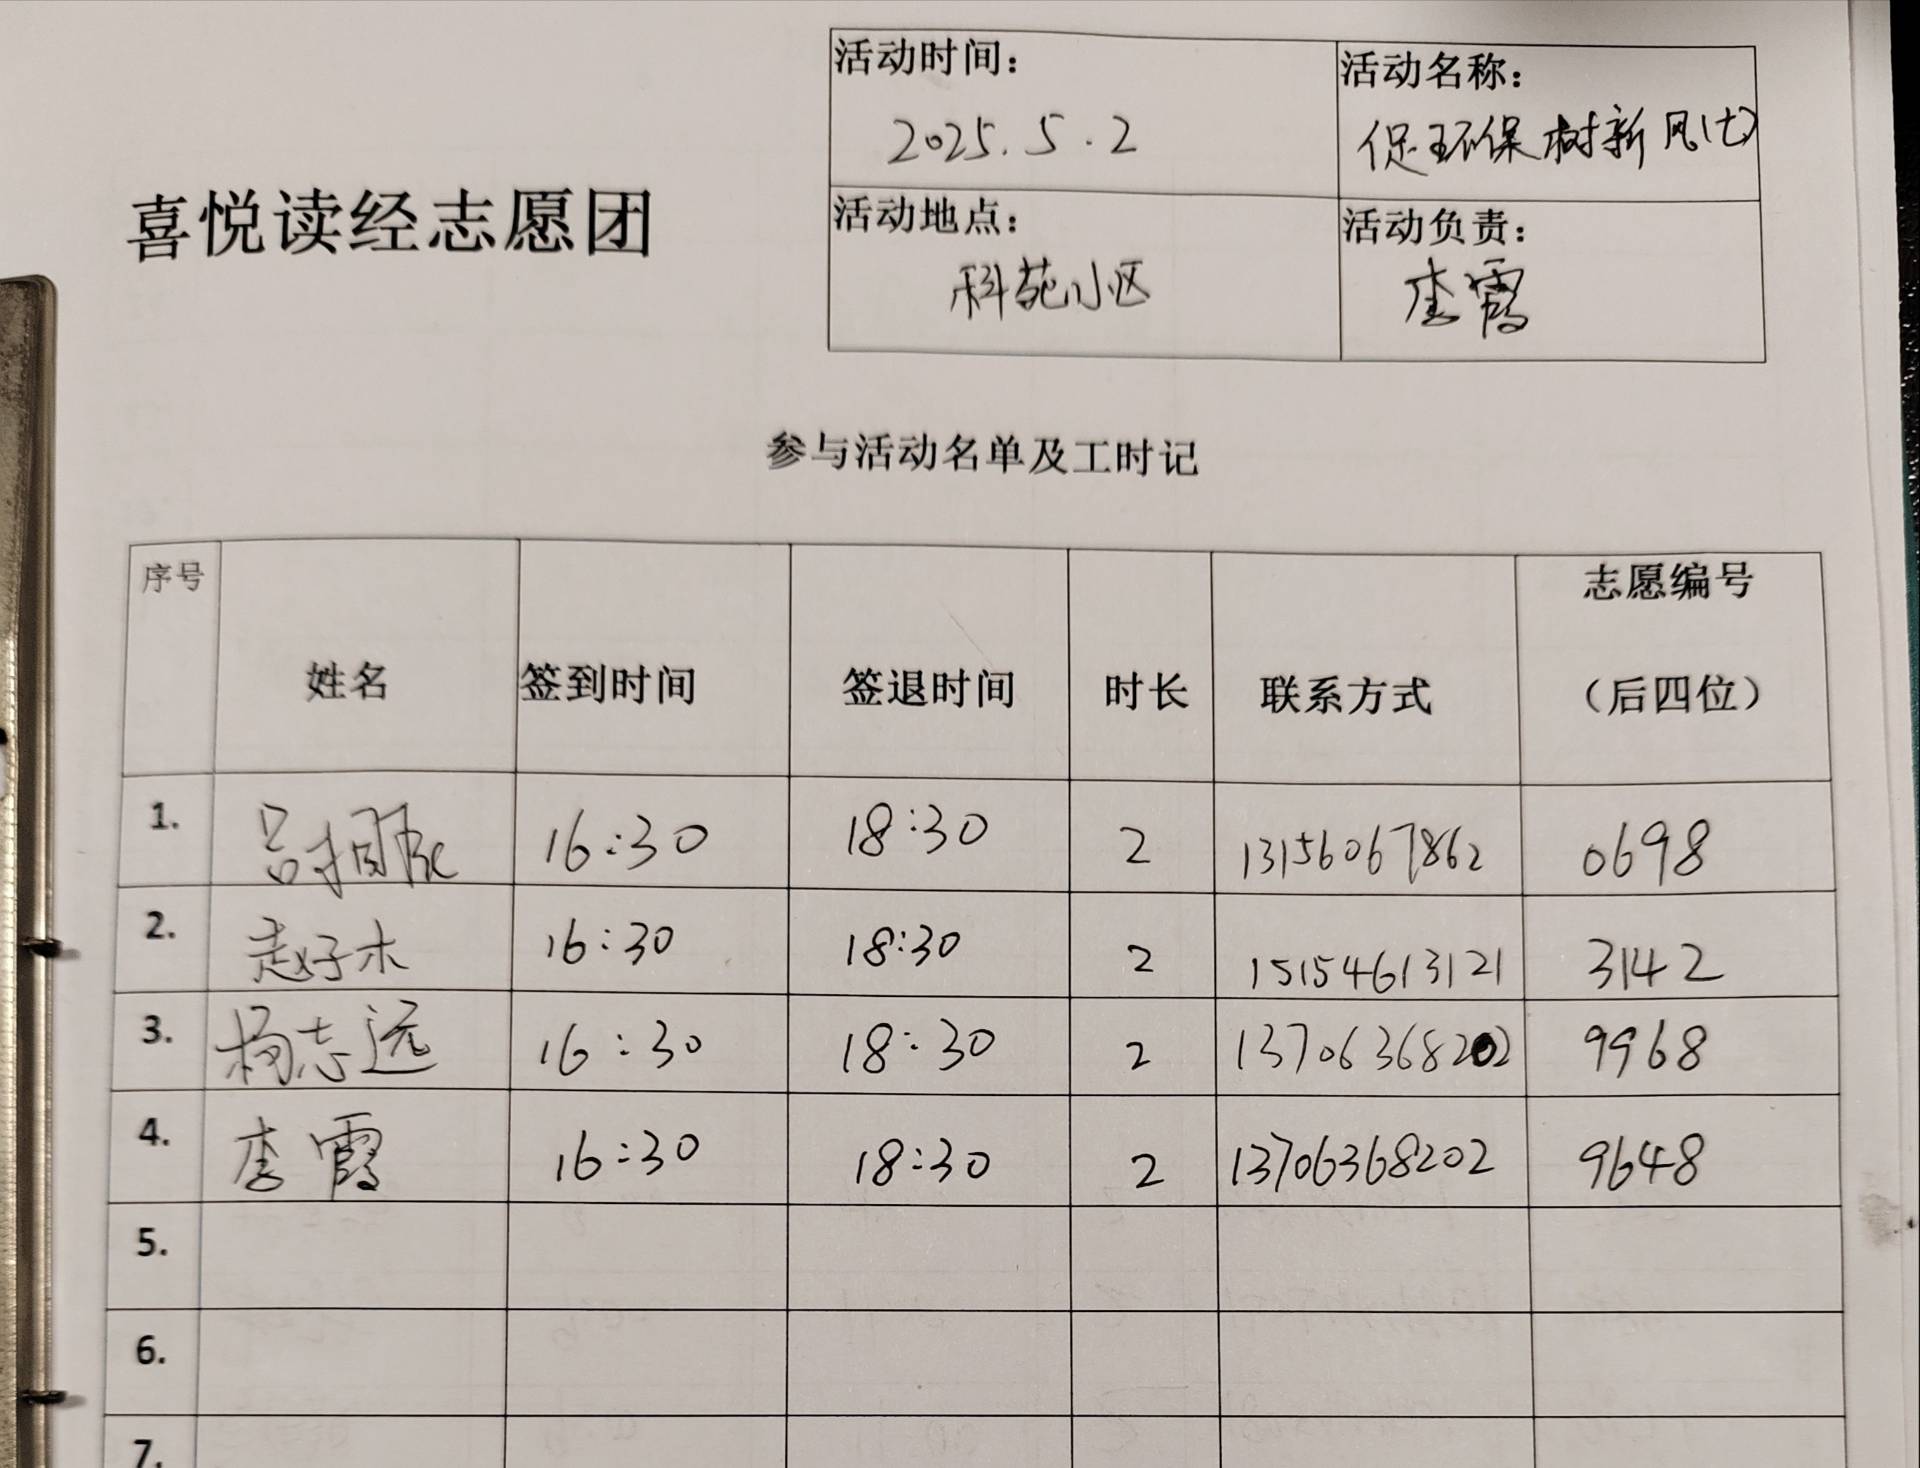 活动时间：
2025.5.2
活动名称：
促环保树新风(七)
喜悦读经志愿团
活动地点：
科苑小区
活动负责：
李霞
参与活动名单及工时记
序号 姓名 签到时间 签退时间 时长 联系方式 志愿编号（后四位）
1. 吕 16:30 18:30 2 13156067862 0698
2. 赵子木 16:30 18:30 2 15154613121 3142
3. 杨志远 16:30 18:30 2 13706368202 9968
4. 李霞 16:30 18:30 2 13706368202 9648
5.
6.
7.